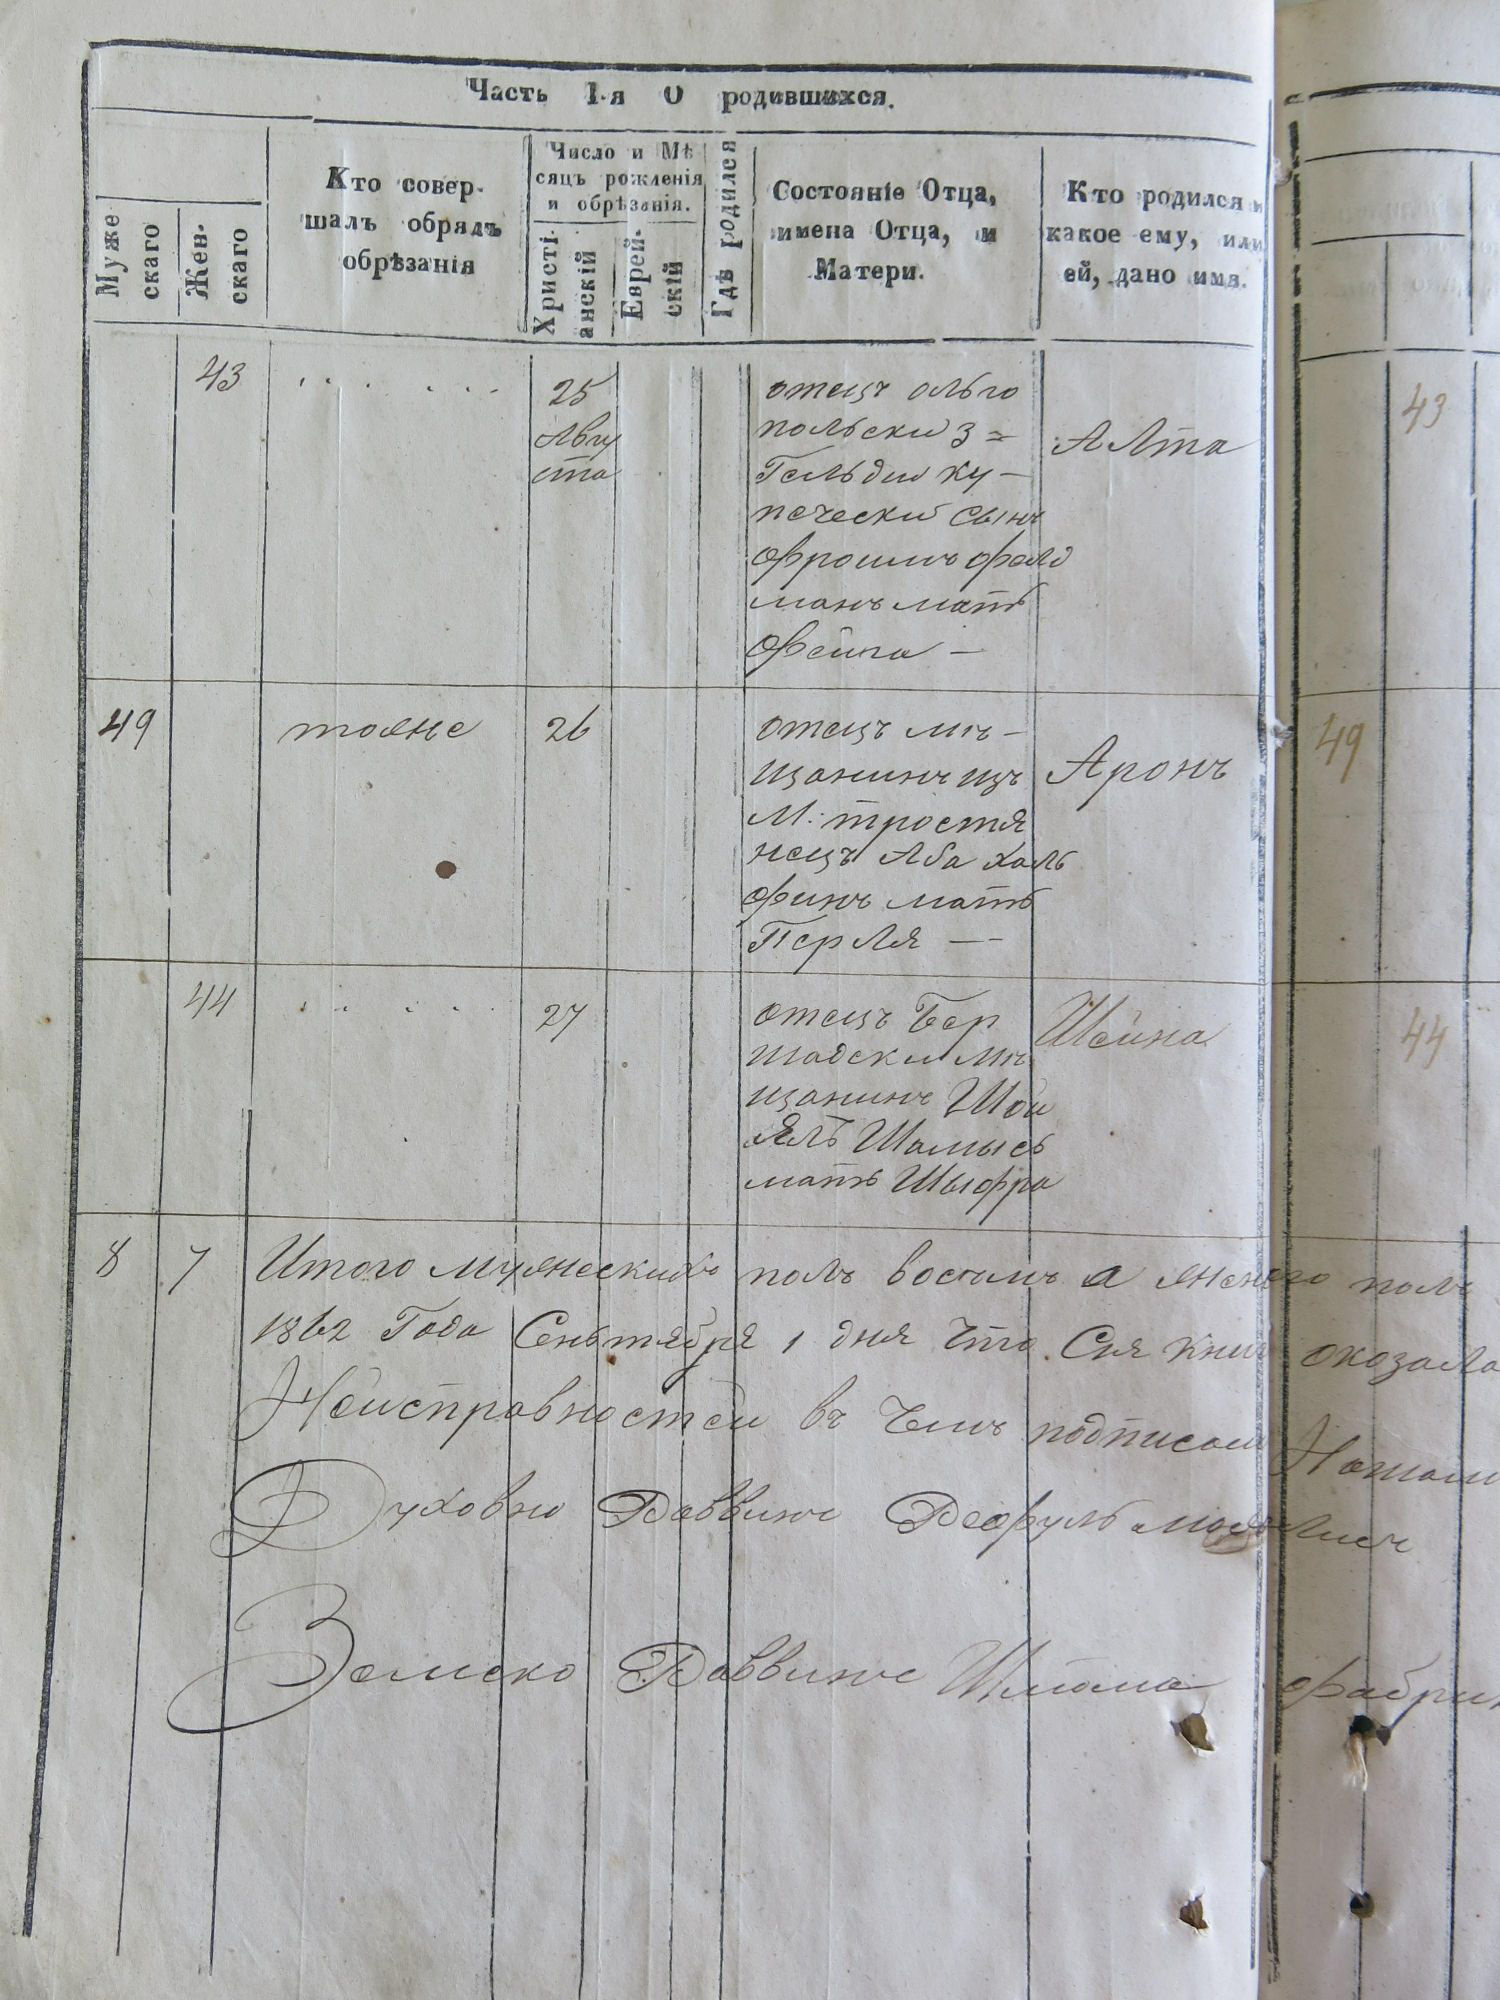 Часть I-я О родившихся.
Муже
скаго
Жен-
скаго
Кто совер-
шалъ обрядъ
обрѣзанія
Число и Мѣ
сяцъ рожденія
и обрѣзанія.
Христі
анскій
Еврей-
скій
Гдѣ родился
Состояніе Отца,
имена Отца, и
Матери.
Кто родился и
какое ему, или
ей, дано имя.
43
25
Авгу
ста
отецъ ольго
польски 3 =
Гельдии ку -
печески сынъ
Фроимъ Фелд
манъ мать
Фейга -
Алта
43
49
тояже
26
отецъ мѣ -
щанинъ изъ
М. тростя
нецъ Аба халь
финъ мать
Перля -
Аронъ
49
44
27
отецъ Бер
шадски мѣ
щанинъ Шои
ялъ Шамысь
мать Шыфра
Шейна
44
8 7 Итого мужескихъ полъ восемъ а женского полъ
1862 Года Сеньтября 1 дня что Сия книг оказала
Неисправностей въ чемъ подписом
Духовно Раввинъ
Земско Раввинъ Шлема Фабрик